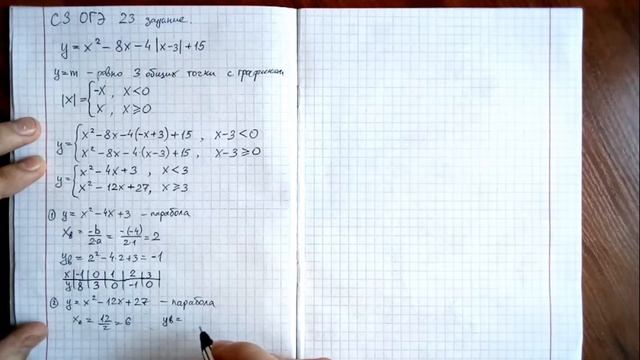 С3 ОГЭ 23 задание.
y = x² - 8x - 4|x-3| + 15
y = m - ровно 3 общих точки с графиком
|x| = { -x, x < 0
x, x ⩾ 0
y = { x² - 8x - 4(-x+3) + 15, x-3 < 0
x² - 8x - 4(x-3) + 15, x-3 ⩾ 0
y = { x² - 4x + 3, x < 3
x² - 12x + 27, x ⩾ 3
① y = x² - 4x + 3 - парабола
xв = -b/2a = -(-4)/2·1 = 2
yв = 2² - 4·2 + 3 = -1
x | -1 | 0 | 1 | 2 | 3 |
y | 8 | 3 | 0 | -1 | 0 |
② y = x² - 12x + 27 - парабола
xв = 12/2 = 6 yв =